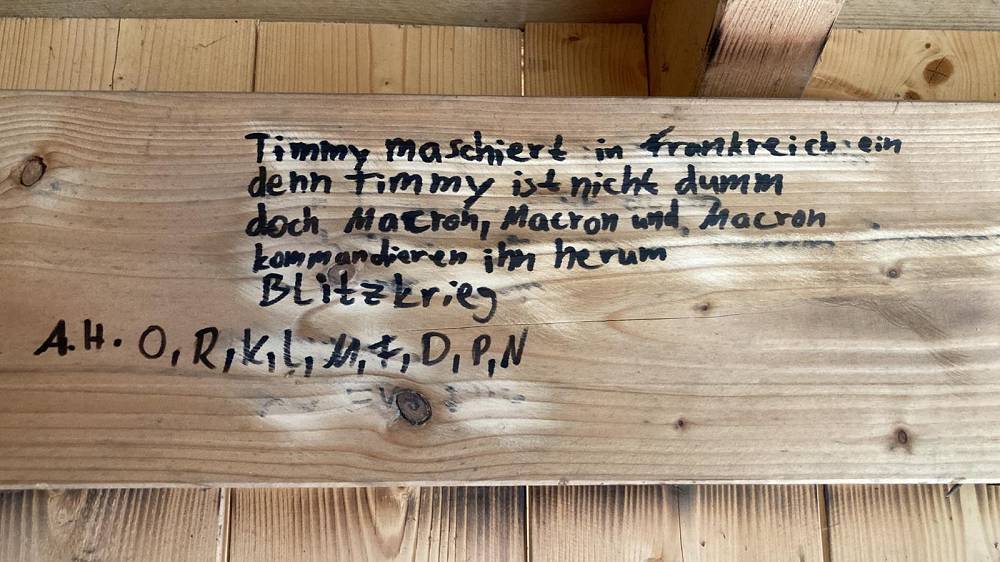 Timmy maschiert in Frankreich ein
denn Timmy ist nicht dumm
doch Macron, Macron und Macron
kommandieren ihn herum
Blitzkrieg
A.H. O, R, K, L, M, F, D, P, N